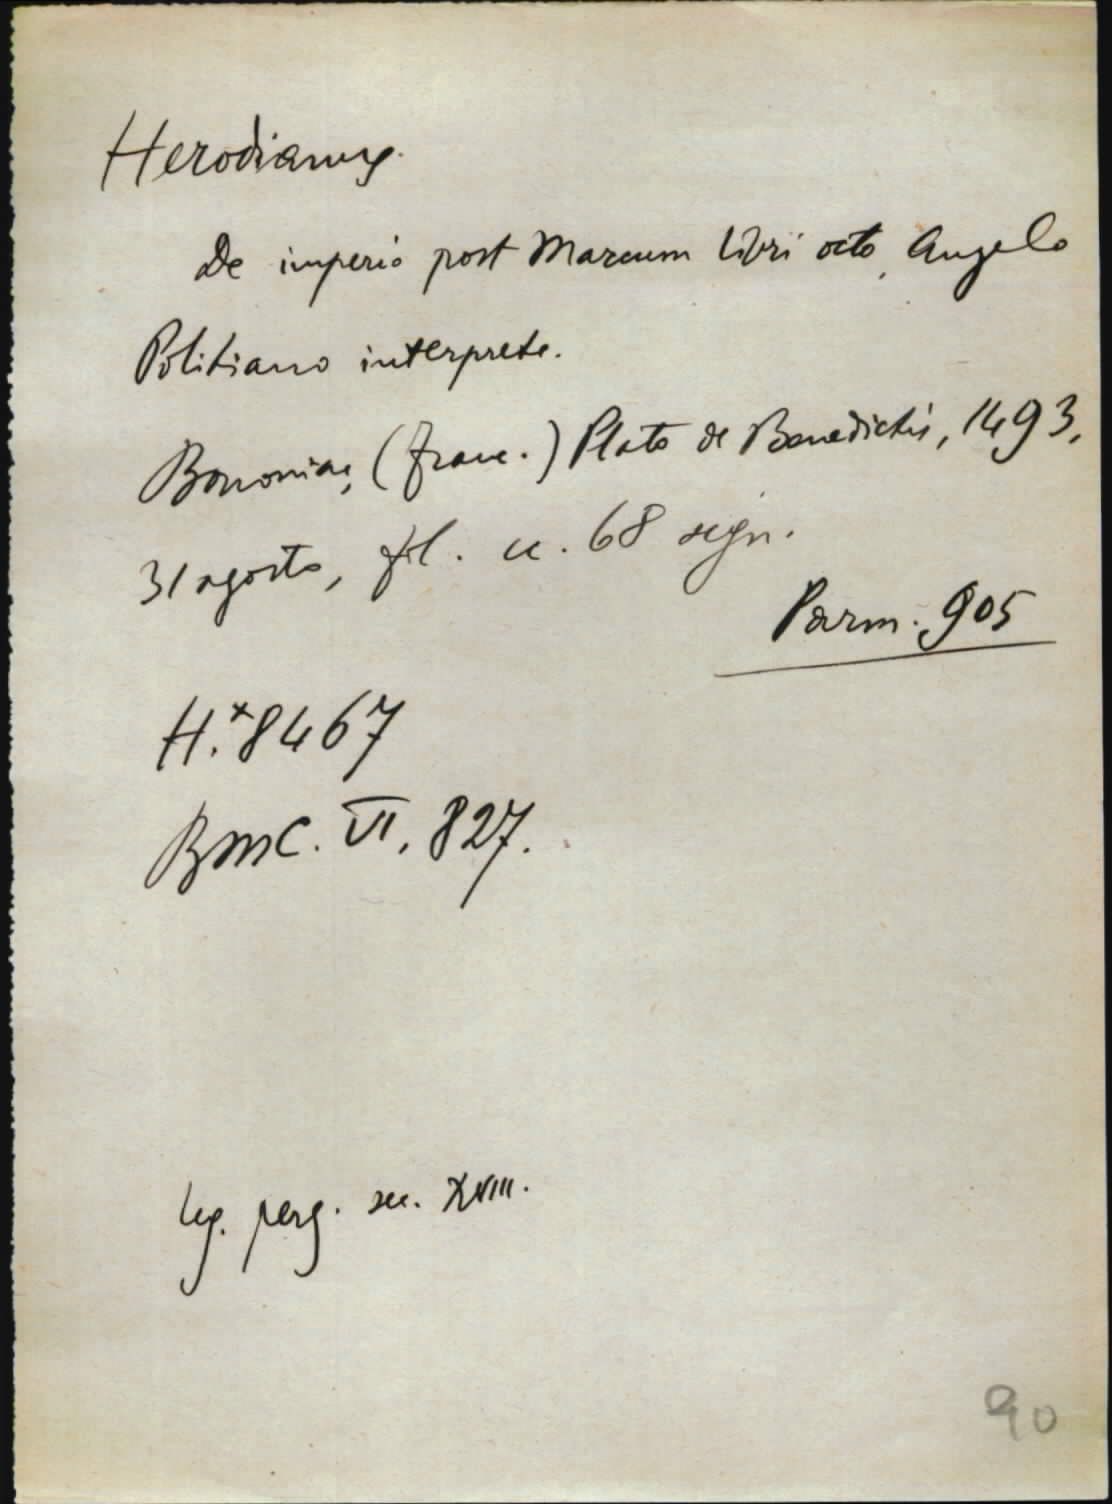 Herodianus.
De imperio post Marcum libri octo, Angelo
Politiano interprete.
Bononiae, (Franc.) Plato de Benedictis, 1493,
31 agosto, fol. cc. 68 segn.
Parm. 905
H.*8467
BMC. VI, 827.
leg. perg. sec. XVIII.
90